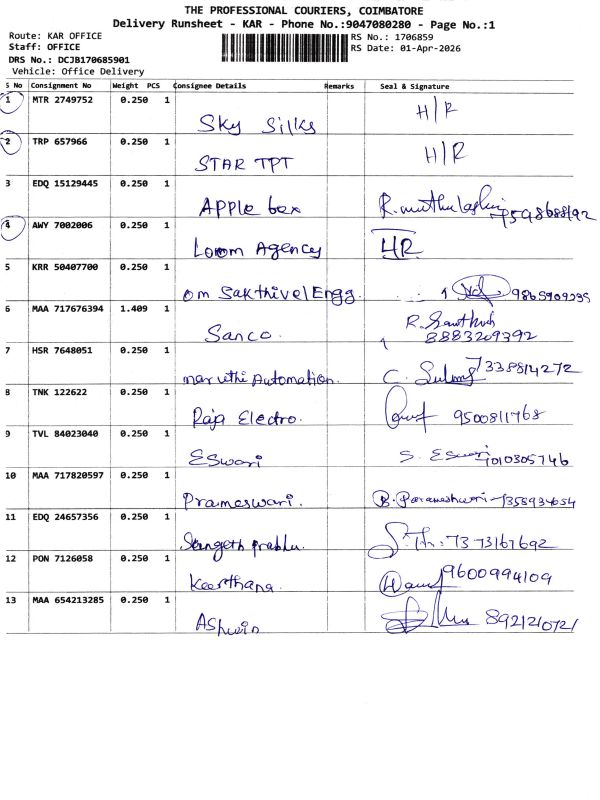 THE PROFESSIONAL COURIERS, COIMBATORE
Delivery Runsheet - KAR - Phone No.:9047080280 - Page No.:1
Route: KAR OFFICE
Staff: OFFICE
DRS No.: DCJB170685901
Vehicle: Office Delivery
RS No.: 1706859
RS Date: 01-Apr-2026
S No Consignment No Weight PCS Consignee Details Remarks Seal & Signature
1 MTR 2749752 0.250 1 Sky Silks H/R
2 TRP 657966 0.250 1 STAR TPT H/R
3 EDQ 15129445 0.250 1 APPle box
4 AWY 7002006 0.250 1 Loom Agency HR
5 KRR 50407700 0.250 1 om Sakthivel Engg.
6 MAA 717676394 1.409 1 Sanco. 8883209392
7 HSR 7648051 0.250 1 maruthi Automation. 7338814272
8 TNK 122622 0.250 1 Raja Electro. 9500811768
9 TVL 84023040 0.250 1 ESwari S. Eswari 7010305746
10 MAA 717820597 0.250 1 Prameswari. B. Parameshwari
11 EDQ 24657356 0.250 1 7373167692
12 PON 7126058 0.250 1 Keerthana. 9600994109
13 MAA 654213285 0.250 1 AShwin 8921210721